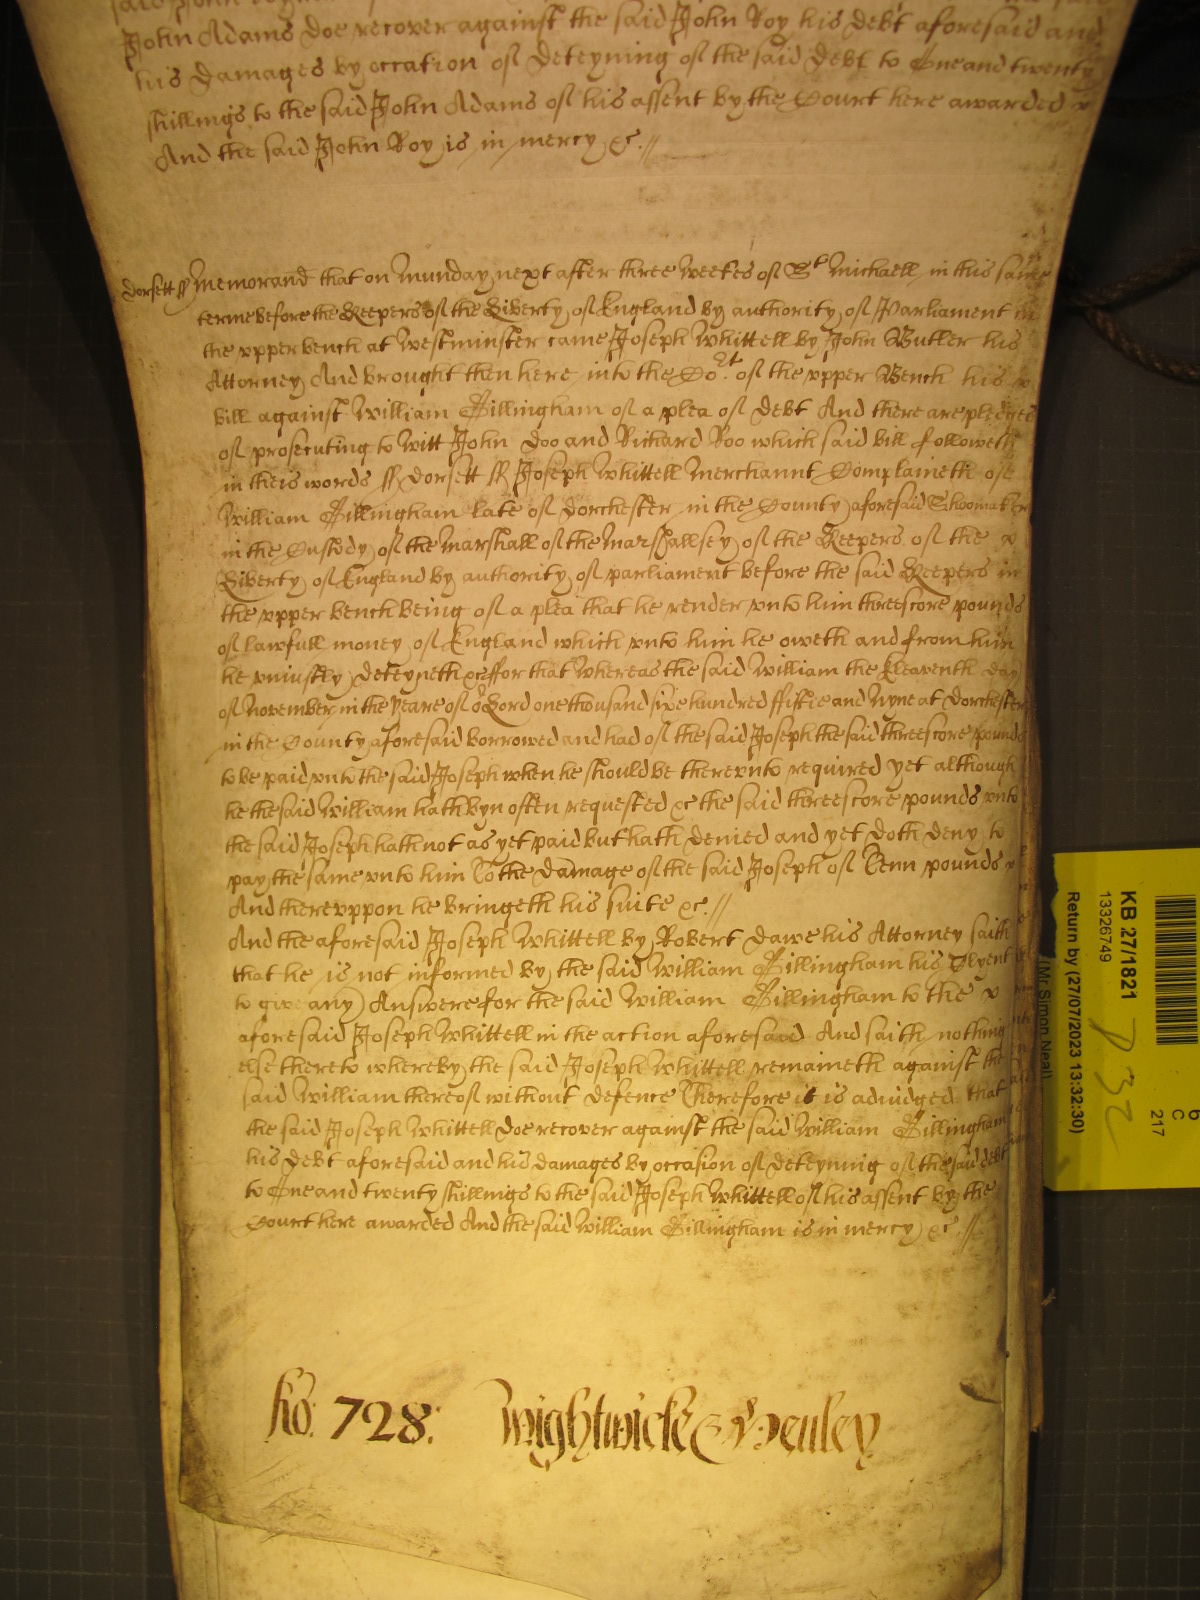 John Adams doe recover against the said John Roy his debt aforesaid and
his damages by occation of deteyning of the said debt to One and twenty
shillings to the said John Adams of his assent by the Court here awarded
And the said John Roy is in mercy &c.//
Dorsett ss Memorand that on Munday next after three Weekes of St Michaell in this same
terme before the Keepers of the Liberty of England by authority of Parliament in
the upper bench at Westminster came Joseph Whittell by John Butler his
Attorney And brought then here into the Cort of the upper Bench his
bill against William Gillingham of a plea of debt And there are pledges
of prosecuting to witt John Doo and Richard Roo which said bill followeth
in theis words ss Dorsett ss Joseph Whittell Merchannt Complaineth of
William Gillingham late of Dorchester in the County aforesaid Shoomaker
in the Custody of the Marshall of the Marshallsey of the Keepers of the
Liberty of England by authority of parliament before the said Keepers in
the upper bench being of a plea that he render unto him threescore pounds
of lawfull money of England which unto him he oweth and from him
he uniustly deteyneth &c ffor that Whereas the said William the Eleaventh day
of November in the yeare of or Lord one thousand sixe hundred ffiftie and Nyne at Dorchester
in the County aforesaid borrowed and had of the said Joseph the said threescore pounds
to be paid unto the said Joseph when he should be thereunto required yet although
he the said William hath byn often requested &c the said threescore pounds unto
the said Joseph hath not as yet paid but hath denied and yet doth deny to
pay the same unto him To the damage of the said Joseph of Tenn pounds
And thereuppon he bringeth his suite &c.//
And the aforesaid Joseph Whittell by Robert Dawe his Attorney saith
that he is not informed by the said William Gillingham his Clyent
to give any Answere for the said William Gillingham to the
aforesaid Joseph Whittell in the action aforesaid And saith nothing
else thereto whereby the said Joseph Whittell remaineth against the
said William thereof without defence Therefore it is adiudged that
the said Joseph Whittell doe recover against the said William Gillingham
his debt aforesaid and his damages by occasion of deteyning of the said debt
to One and twenty shillings to the said Joseph Whittell of his assent by the
Court here awarded And the said William Gillingham is in mercy &c.//
Ro: 728: Wightwicke & Henley
KB 27/1821
13326749
Return by (27/07/2023 13:32:30)
(Mr Simon Neal)
C
217